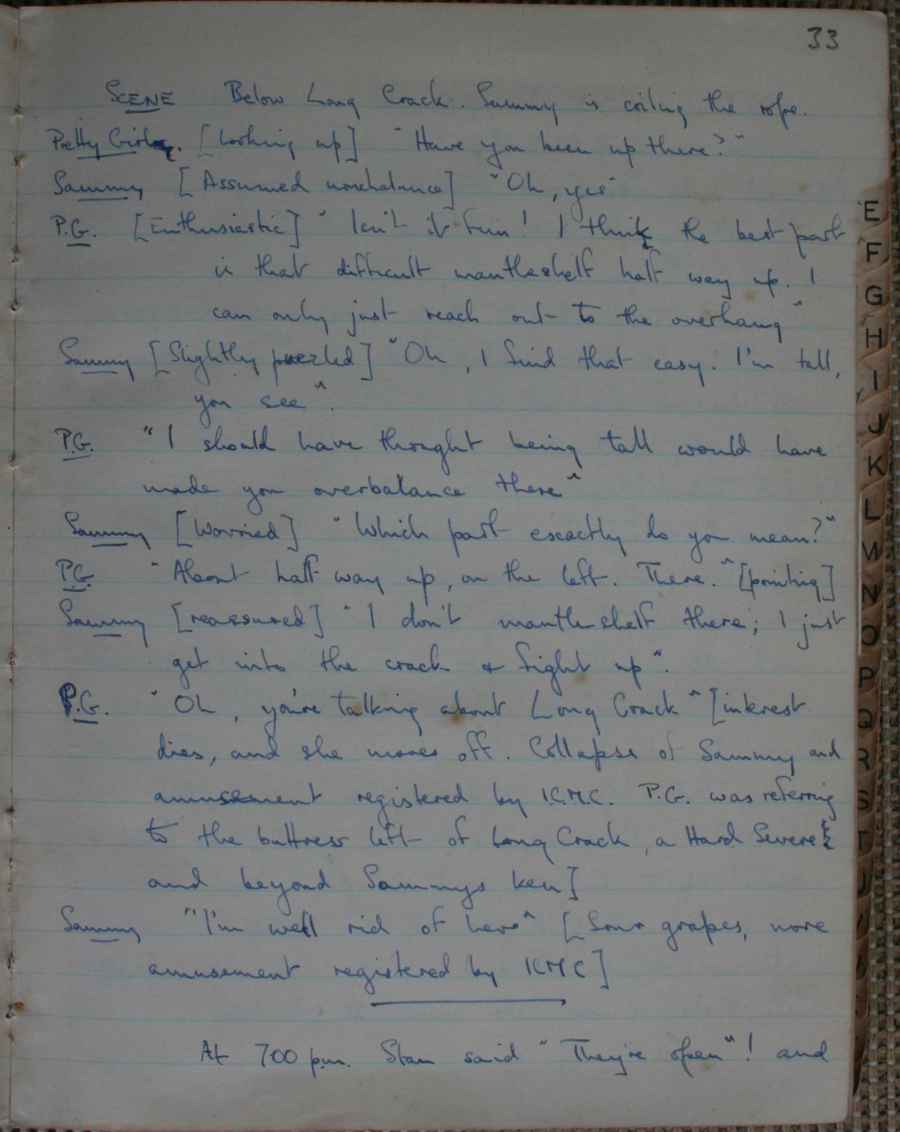 33
SCENE Below Long Crack. Sammy is coiling the rope.
Pretty Girl. [Looking up] "Have you been up there?"
Sammy [Assumed nonchalance] "Oh, yes"
P.G. [Enthusiastic] "Isn't it fun! I think the best part
is that difficult mantleshelf half way up. I
can only just reach out to the overhang"
Sammy [Slightly puzzled] "Oh, I find that easy. I'm tall,
you see".
P.G. "I should have thought being tall would have
made you overbalance there"
Sammy [Worried] "Which part exactly do you mean?"
P.G. "About half way up, on the left. There." [pointing]
Sammy [reassured] "I don't mantleshelf there; I just
get into the crack & fight up".
P.G. "Oh, you're talking about Long Crack" [interest
dies, and she moves off. Collapse of Sammy and
amusement registered by KMC. P.G. was referring
to the buttress left of Long Crack, a Hard Severe
and beyond Sammys ken]
Sammy "I'm well rid of her" [Sour grapes, more
amusement registered by KMC]
At 700 p.m. Stan said "They're open"! and
E
F
G
H
I
J
K
L
M
N
O
P
Q
R
S
T
U